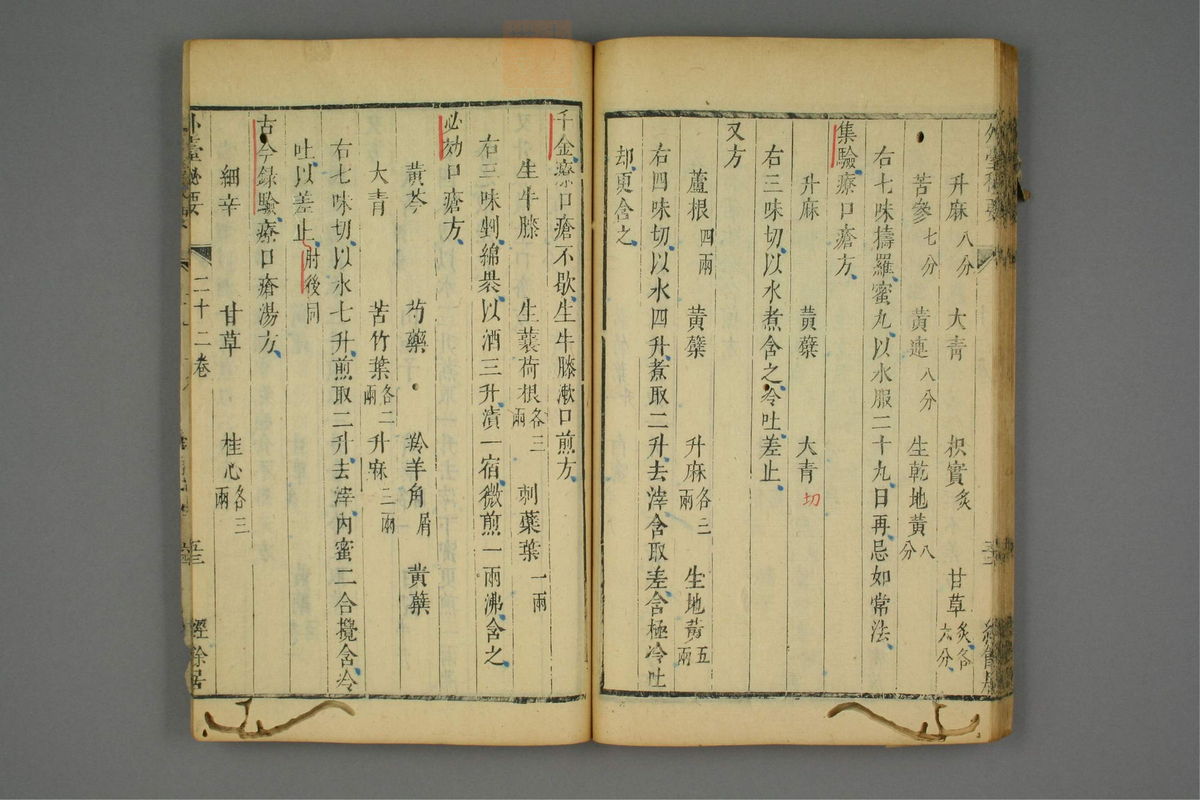 升麻八分 大青 枳實炙 甘草炙各六分
苦參七分 黃連八分 生乾地黃八分
右七味擣羅蜜丸以水服二十九日再忌如常法
集驗療口瘡方
升麻 黃蘗 大青切
右三味切以水煮含之冷吐差止
又方
蘆根四兩 黃蘗 升麻各三兩 生地黃五兩
右四味切以水四升煮取二升去滓含取差含極冷吐
却更含之
千金療口瘡不歇生牛膝漱口煎方
生牛膝 生蘘荷根各三兩 刺蘗葉一兩
右三味剉綿裝以酒三升漬一宿微煎一兩沸含之
必効口瘡方
黃芩 芍藥 羚羊角屑 黃蘗
大青 苦竹葉各二兩 升麻三兩
右七味切以水七升煎取二升去滓內蜜二合攪含冷
吐以差止肘後同
古今錄驗療口瘡湯方
細辛 甘草 桂心各三兩
外臺秘要 二十二卷 五三 經餘居